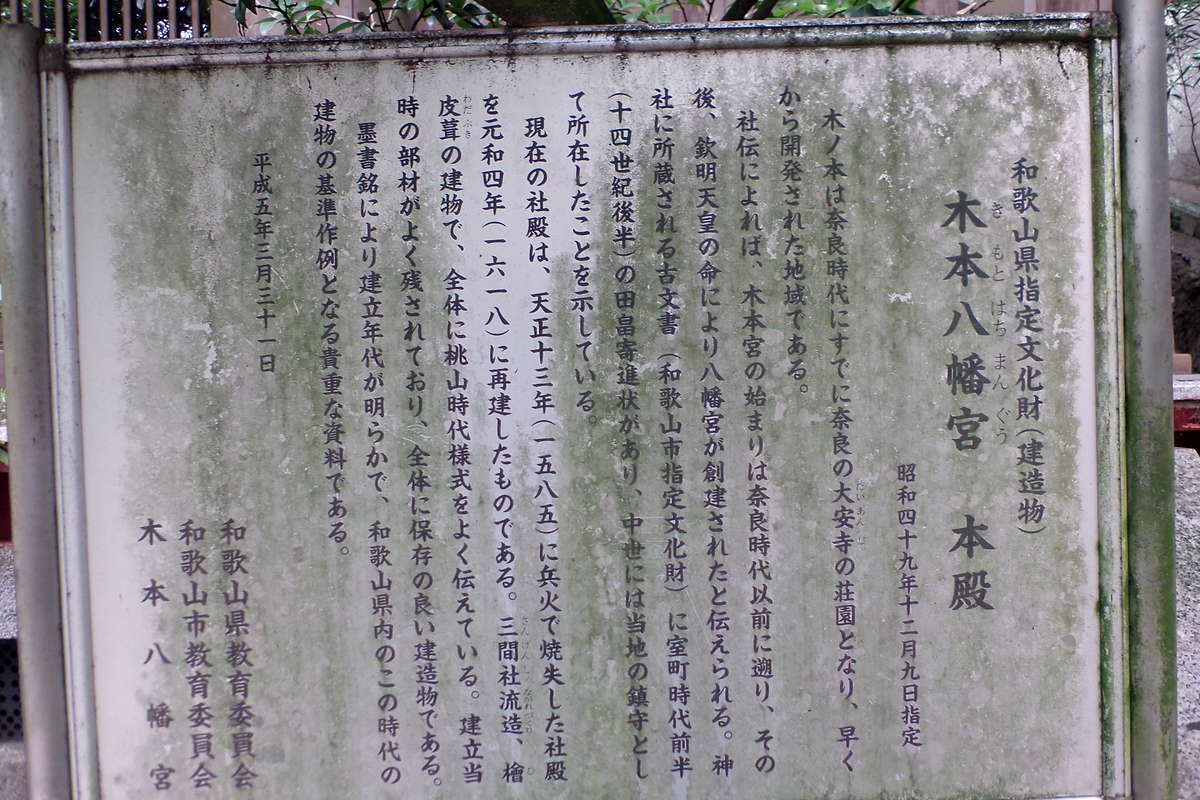 和歌山県指定文化財(建造物)
木本八幡宮 本殿
き もと はち まん ぐう
昭和四十九年十二月九日指定
木ノ本は奈良時代にすでに奈良の大安寺の荘園となり、早く
から開発された地域である。
社伝によれば、木本宮の始まりは奈良時代以前に遡り、その
後、欽明天皇の命により八幡宮が創建されたと伝えられる。神
社に所蔵される古文書(和歌山市指定文化財)に室町時代前半
(十四世紀後半)の田畠寄進状があり、中世には当地の鎮守とし
て所在したことを示している。
現在の社殿は、天正十三年(一五八五)に兵火で焼失した社殿
を元和四年(一六一八)に再建したものである。三間社流造、檜
皮葺の建物で、全体に桃山時代様式をよく伝えている。建立当
わだぶき
時の部材がよく残されており、全体に保存の良い建造物である。
墨書銘により建立年代が明らかで、和歌山県内のこの時代の
建物の基準作例となる貴重な資料である。
平成五年三月三十一日
和歌山県教育委員会
和歌山市教育委員会
木本八幡宮